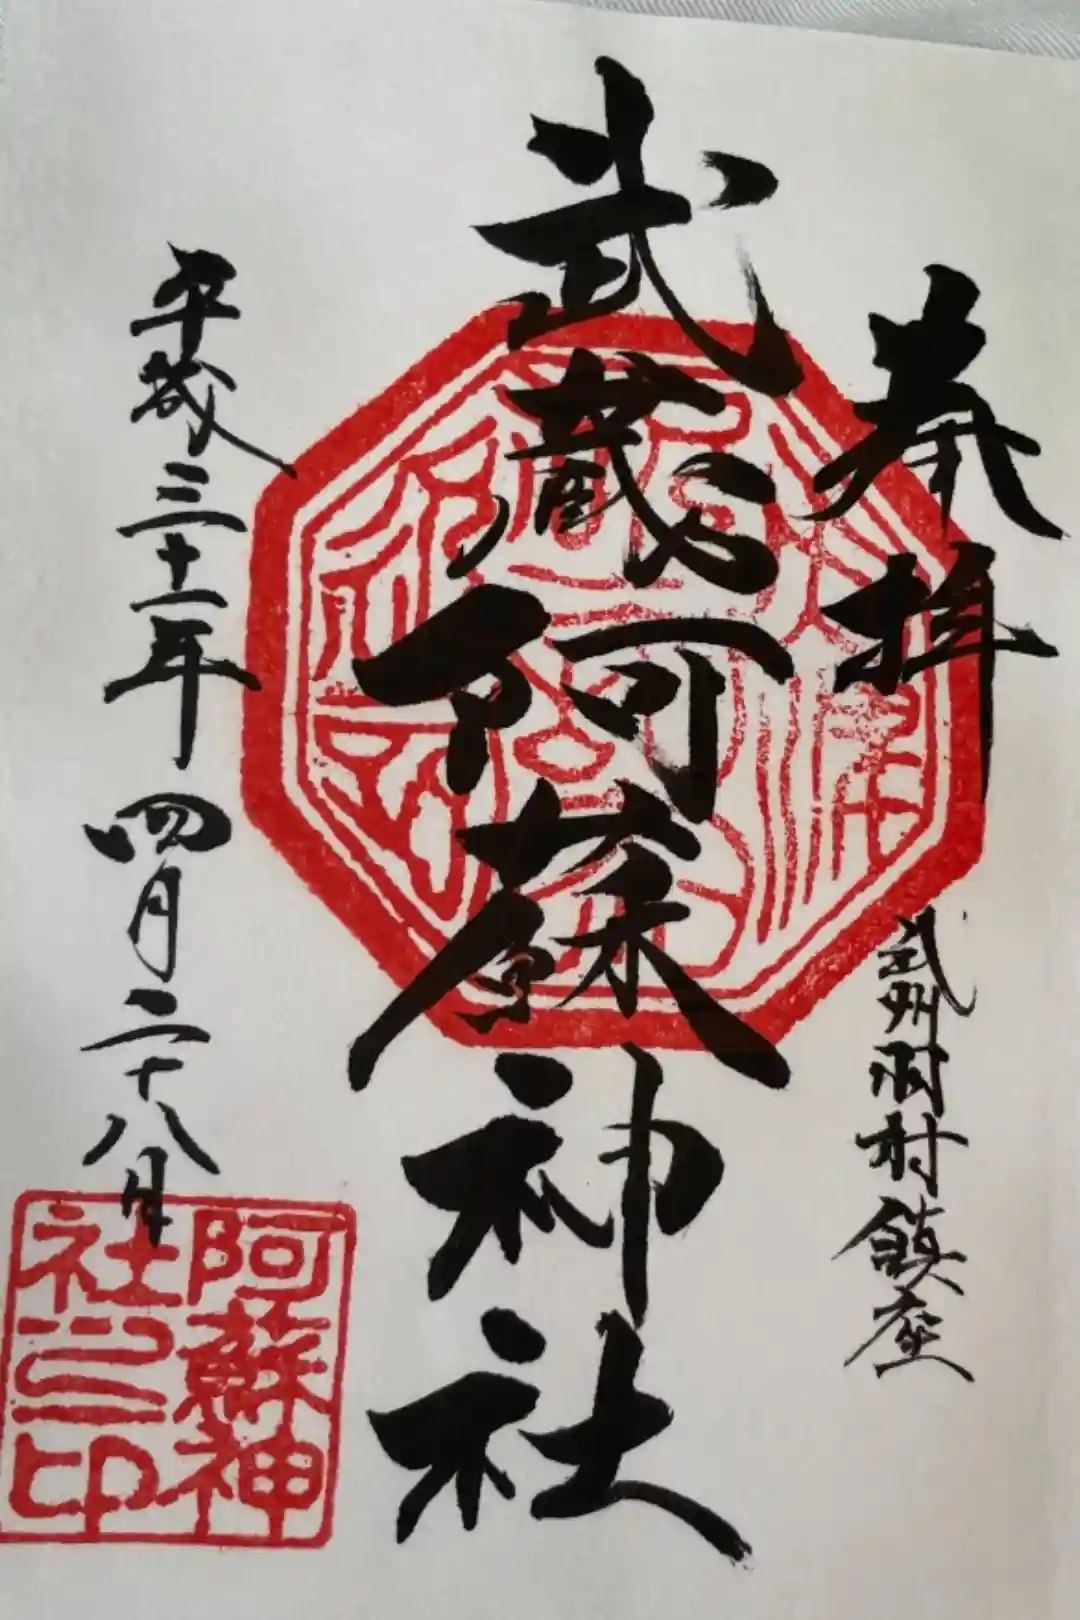 奉拝
武州羽村鎮座
武蔵
阿蘇神社
平成三十一年四月二十八日
阿蘇神
社之印